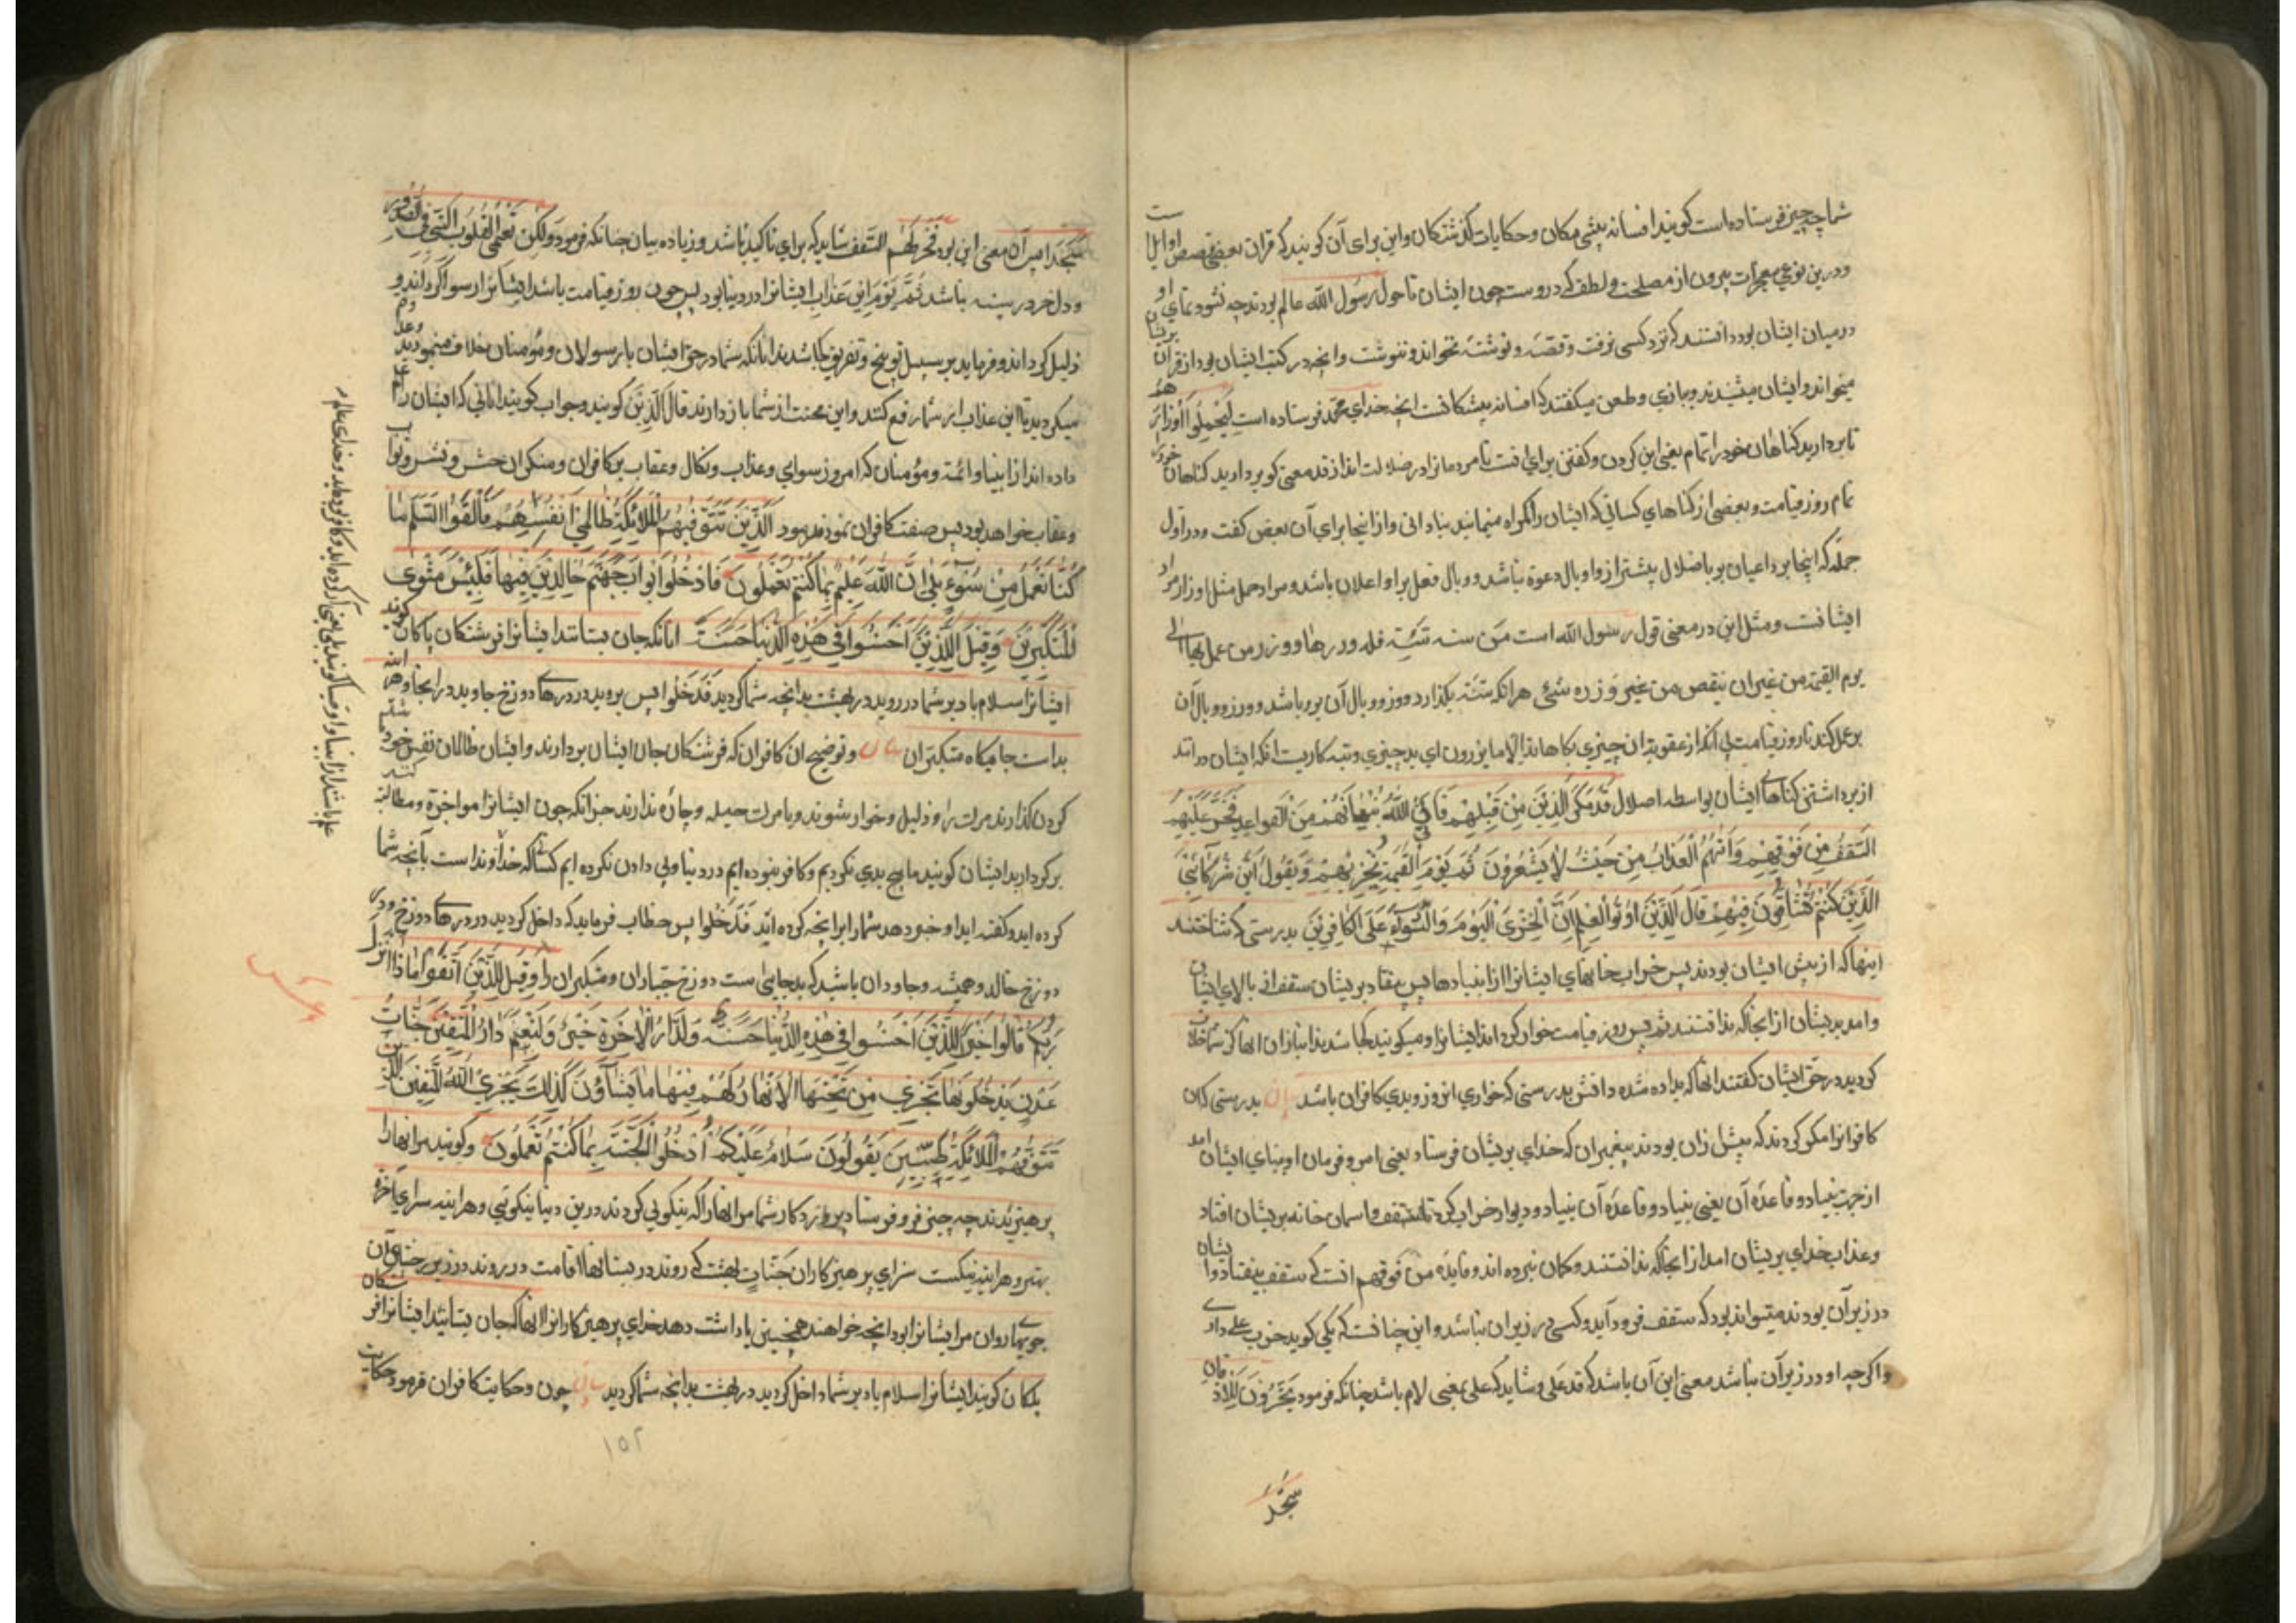 شما چه چیز فرستاده است کویند افسانه پیشی مکان وحکایات کذشتکان واین برای آن کویند که قران بعضی قصص اوایل است
ودرین نوعی معجزات بیرون از مصلحت ولطف که در وست چون ایشان تا حول رسول الله عالم بودند چه نشود نمای او
درمیان ایشان بود دانستند که نزد کسی نرفت وقصه ونوشته نخواند وننوشت وانچه در کتب ایشان بود از قران بریشان
میخواند وایشان میشنیدند وببازی وطعن میکفتند که افسانه پیشکانست انچه خدای محمد فرستاده است لیحملوا اوزارهم
تا بردارید کناهان خود را تمام یعنی این کردن وکفتن برای انست تا مردمانرا در ضلالت اندازند معنی کو بردارید کناهان خود
تمام روز قیامت وبعضی از کناهای کسانی که ایشان را کمراه مینمایند بنادانی وازاینجا برای آن بعض کفت ودر اول
جمله که اینجا بر داعیان بو باضلال پیشتر از و اوبال دعوة نباشد ووبال فعل براو اعلان باشد ومراد حمل مثل اوزار مراد
ایشانست ومثل این در معنی قول رسول الله است من سنه سیئة فله وزرها ووزر من عمل بها الی
یوم القیمة من غیر ان ینقص من غیر وزره شئ هر انکه سنته بکذارد ووزر ووبال آن برو باشد ووزر ووبال آن
بر عمل کند تا روز قیامت بی انکه از عقوبة ان چیزی بکاهاند الا ما یزرون ای بد چیزی وتبه کاریست انکه ایشان دانند
از برداشتن کناهای ایشان بواسطه اضلال قَدْ مَكَرَ الَّذِينَ مِنْ قَبْلِهِمْ فَأَتَى اللَّهُ بُنْيَانَهُمْ مِنَ الْقَوَاعِدِ فَخَرَّ عَلَيْهِمُ
السَّقْفُ مِنْ فَوْقِهِمْ وَأَتَاهُمُ الْعَذَابُ مِنْ حَيْثُ لَا يَشْعُرُونَ ثُمَّ يَوْمَ الْقِيمَةِ يُخْزِيهِمْ وَيَقُولُ أَيْنَ شُرَكَائِيَ
الَّذِينَ كُنْتُمْ تُشَاقُّونَ فِيهِمْ قَالَ الَّذِينَ أُوتُوا الْعِلْمَ إِنَّ الْخِزْيَ الْيَوْمَ وَالسُّوءَ عَلَى الْكَافِرِينَ بدرستی که شناختند
اینها که از پیش ایشان بودند پس خراب خانهای ایشانرا از بنیادها پس بیفتاد بریشان سقف از بالای ایشان
وامد بریشان از انجا که ندانستند ثم پس روز قیامت خوار کرداند ایشانرا ومیکویند کجا شدند انبازان انها که شما خلاف
کردید در حق ایشان کفتند انها که بداده شده دانش بدرستی که خواری امروز وبدی کافران باشد بیان بدرستی کان
کافرانرا مکر کردند که پیش زان بودند پیغمبران که خدای بریشان فرستاد یعنی امر وفرمان او ببنای ایشان امد
از جهت بنیاد وقاعده آن یعنی بنیاد وقاعده آن بنیاد ودیوار خراب کرد تا سقف واسمان خانه بریشان افتاد
وعذاب خدای بریشان امد از انجا که ندانستند وکمان نبرده اند وفایده من فوقهم انست که سقف بیفتاد وایشان
در زیر آن بودند میتواند بود که سقف فرود آید وکسی در زیر ان نباشد واین چنانست که یکی کوید خرب علی داری
واکرچه او در زیر آن نباشد معنی این آن باشد که قد علی وشاید که علی بمعنی لام باشد چنانکه فرمود یَخِرُّونَ لِلْأَذْقَانِ
سجّدا
سُجَّدا پس آن معنی این بود فَخَرَّ لَهُمُ السَّقف شاید که برای تاکید باشد وزیاده بیان چنانکه فرمود وَلَكِنْ تَعْمَى الْقُلُوبُ الَّتِي فِي الصُّدُور
ودل خود در سینه باشد ثُمَّ يَوْمَ این عذاب ایشانرا در دنیا بود پس چون روز قیامت باشد ایشانرا رسوا کرداند و
ذلیل کرداند وفرماید بر سبیل توبیخ وتقریع کجا شدند انانکه شما در حق ایشان با رسولان ومؤمنان خلاف مینمودید
میکردید تا این عذاب از شما رفع کنند واین محنت از شما باز دارند قَالَ الَّذِينَ کویند وجواب کویند انانی که ایشان را علم
داده اند از انبیا وائمه ومؤمنان که امروز رسوای وعذاب ونکال وعقاب بر کافران ومنکران حشر ونشر وثواب
وعقاب خواهد بود پس صفت کافران نمود فرمود الَّذِينَ تَتَوَفَّيهُمُ الْمَلَائِكَةُ ظَالِمِي أَنْفُسِهِمْ فَأَلْقَوُا السَّلَمَ مَا
كُنَّا نَعْمَلُ مِنْ سُوءٍ بَلَى إِنَّ اللَّهَ عَلِيمٌ بِمَا كُنْتُمْ تَعْمَلُونَ فَادْخُلُوا أَبْوَابَ جَهَنَّمَ خَالِدِينَ فِيهَا فَلَبِئْسَ مَثْوَى
الْمُتَكَبِّرِينَ وَقِيلَ لِلَّذِينَ أَحْسَنُوا فِي هَذِهِ الدُّنْيَا حَسَنَةٌ انانکه جان بستانند ایشانرا فرشتکان پاکان کویند
ایشانرا سلام باد بر شما در روید در بهشت بدانچه شما کردید فَادْخُلُوا پس بروید در درهای دوزخ جاوید در انجا وهر اینه
بد است جایکاه متکبران بیان وتوضیح ان کافران که فرشتکان جان ایشان بردارند وایشان ظالمان نفس خود باشند
کردن کذارند مرت را وذلیل وخوار شوند وبا مرت حیله وچاره ندارند جزانکه چون ایشانرا مواخذة ومطالبه کنند
بر کردار بد ایشان کویند ما هیچ بدی نکردیم وکافر نبوده ایم در دنیا ولی دادن نکرده ایم کسانی که خداوند است بانچه شما
کرده اید وکفته اید او خبر دهد شمارا بر انچه کرده اید فَادْخُلُوا پس خطاب فرماید که داخل کردید در درهای دوزخ ودر
دوزخ خالد وهمیشه وجاودان باشید که بد جایی است دوزخ جباران ومتکبران را وَقِيلَ لِلَّذِينَ اتَّقَوْا مَاذَا أَنْزَلَ
رَبُّكُمْ قَالُوا خَيْرًا لِلَّذِينَ أَحْسَنُوا فِي هَذِهِ الدُّنْيَا حَسَنَةٌ وَلَدَارُ الْآخِرَةِ خَيْرٌ وَلَنِعْمَ دَارُ الْمُتَّقِينَ جَنَّاتُ
عَدْنٍ يَدْخُلُونَهَا تَجْرِي مِنْ تَحْتِهَا الْأَنْهَارُ لَهُمْ فِيهَا مَا يَشَاؤُنَ كَذَلِكَ يَجْزِي اللَّهُ الْمُتَّقِينَ الَّذِينَ
تَتَوَفَّيهُمُ الْمَلَائِكَةُ طَيِّبِينَ يَقُولُونَ سَلَامٌ عَلَيْكُمْ ادْخُلُوا الْجَنَّةَ بِمَا كُنْتُمْ تَعْمَلُونَ وکویند مر انهارا
پرهیزیدند چه چیز فرو فرستاد پروردکار شما مر انهارا که نیکویی کردند درین دنیا نیکویی وهراینه سرای آخرة
بهتر وهراینه نیکست سرای پرهیزکاران جَنَّاتِ بهشت که روند در بستانها اقامت در روند در زیر درختان آن
جویهای روان مر ایشانرا بود انچه خواهند همچنین پاداشت دهد خدای پرهیزکارانرا انها که جان بستانید ایشانرا فرشتکان
پلکان کویند ایشانرا سلام باد بر شما داخل کردید در بهشت بدانچه شما کردید بیان چون وحکایت کافران فرمود حکایت
۱۵۲